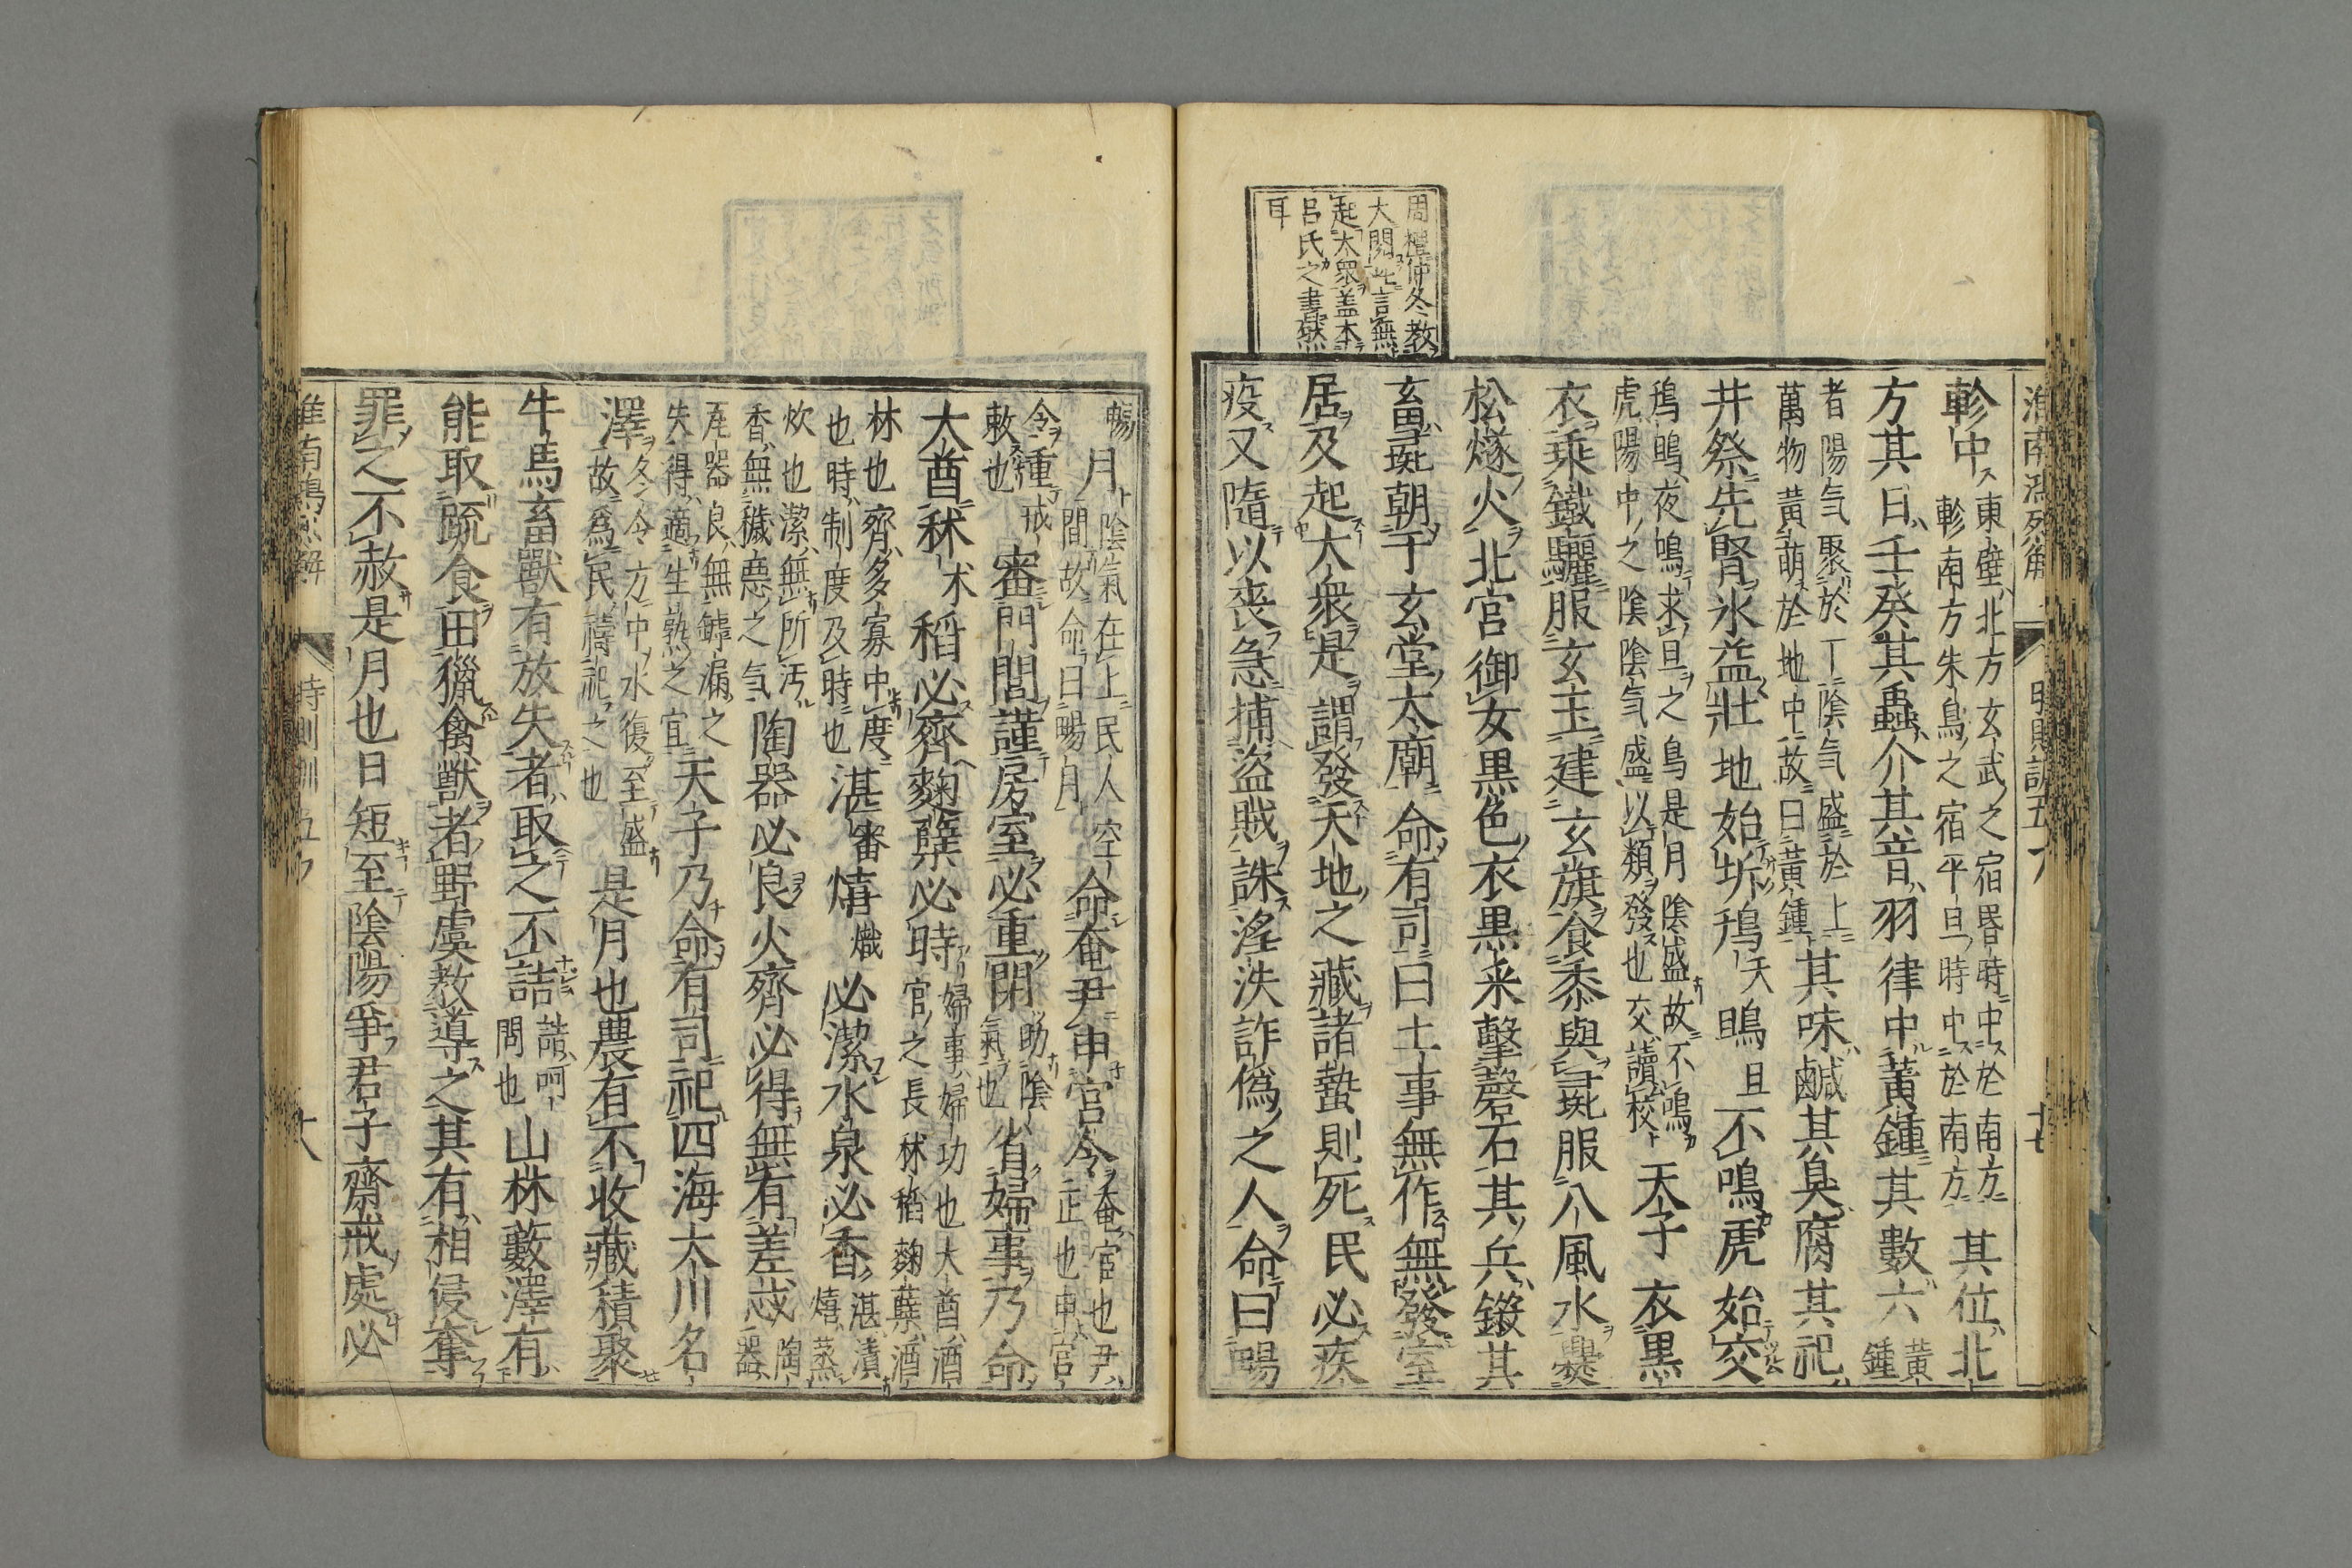 周禮仲冬教
大閱此言無
起大衆盖本
呂氏之書然
耳
軫中東壁北方玄武之宿昏時中於南方
軫南方朱鳥之宿平旦時中於南方其位北
方其日壬癸其蟲介其音羽律中黃鍾其數六黃鍾
者陽气聚於丁陰气盛於上
萬物黃萌於地中故曰黃鍾其味鹹其臭腐其祀
井祭先腎氷益壯地始坼鳱天鴠旦不鳴虎始交
鳱鴠夜鳴求旦之鳥是月陰盛故不鳴
虎陽中之陰陰气盛以類發也交讀校天子衣黒
衣乗鐵驪服玄玉建玄旗食黍與彘服八風水爨
松燧火北宮御女黒色衣黒采擊磬石其兵鎩其
畜彘朝于玄堂太廟命有司曰土事無作無發室
居及起大衆是謂發天地之藏諸蟄則死民必疾
疫又隨以丧急捕盜賊誅淫泆詐僞之人命曰暢
月陰氣在上民人空
間故命曰暢月命奄尹申宮令奄宦也尹
正也申宮
令重戒
敕也審門閭謹房室必重閉助陰
氣也省婦事乃命
大酋秫朮稻必齊麴糵必時婦事婦功也大酋酒
官之長秫稻麴糵酒
林也齊多寡中度
也時制度及時也湛審熺熾必潔水泉必香湛漬
熺蒸
炊也潔無所汚
香無穢惡之气陶器必良火齊必得無有差忒陶
器
瓦器良無罅漏之
失得適生熟之宜天子乃命有司祀四海大川名
澤冬令方中水復至盛
故爲民禱祀之也是月也農有不收藏積聚
牛馬畜獸有放失者取之不詰詰呵
問也山林藪澤有
能取蔬食田獵禽獣者野虞教導之其有相侵奪
罪之不赦是月也日短至陰陽爭君子齋戒處必
時則訓五